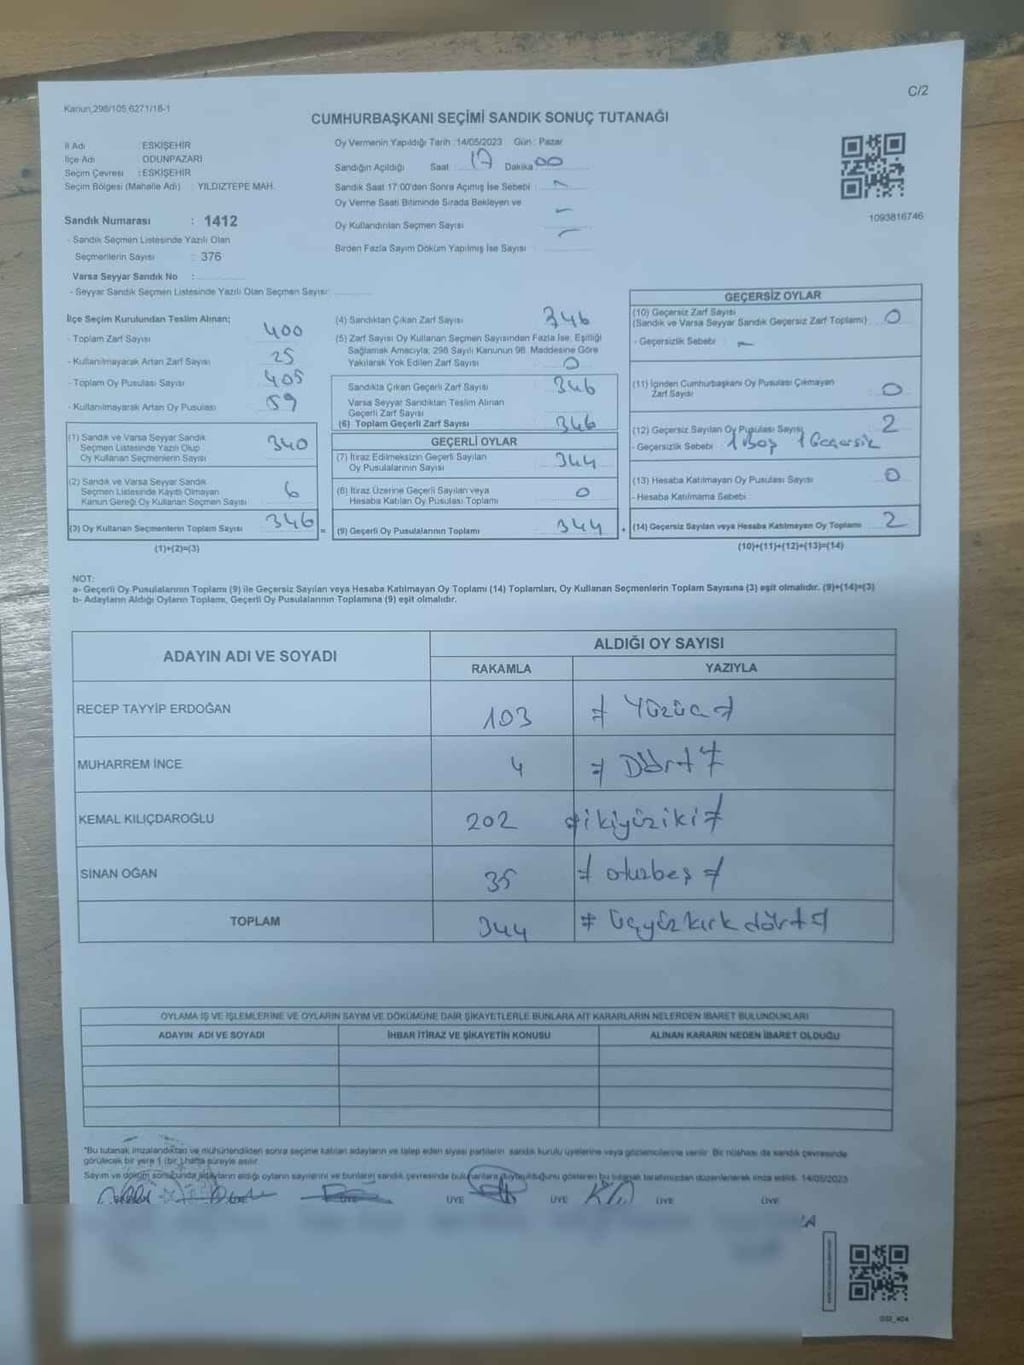 C/2
Kanun,298/105,6271/18-1
CUMHURBAŞKANI SEÇİMİ SANDIK SONUÇ TUTANAĞI
İl Adı : ESKİŞEHİR
İlçe Adı : ODUNPAZARI
Seçim Çevresi : ESKİŞEHİR
Seçim Bölgesi (Mahalle Adı) : YILDIZTEPE MAH.
Sandık Numarası : 1412
- Sandık Seçmen Listesinde Yazılı Olan
Seçmenlerin Sayısı : 376
Varsa Seyyar Sandık No :
- Seyyar Sandık Seçmen Listesinde Yazılı Olan Seçmen Sayısı:
Oy Vermenin Yapıldığı Tarih :14/05/2023 Gün : Pazar
Sandığın Açıldığı Saat 17 Dakika 00
Sandık Saat 17:00'den Sonra Açımış İse Sebebi -
Oy Verme Saati Bitiminde Sırada Bekleyen ve
Oy Kullandırılan Seçmen Sayısı -
Birden Fazla Sayım Döküm Yapılmış İse Sayısı -
1093816746
İlçe Seçim Kurulundan Teslim Alınan;
- Toplam Zarf Sayısı 400
- Kullanılmayarak Artan Zarf Sayısı 25
- Toplam Oy Pusulası Sayısı 405
- Kullanılmayarak Artan Oy Pusulası 59
(1) Sandık ve Varsa Seyyar Sandık
Seçmen Listesinde Yazılı Olup
Oy Kullanan Seçmenlerin Sayısı 340
(2) Sandık ve Varsa Seyyar Sandık
Seçmen Listesinde Kayıtlı Olmayan
Kanun Gereği Oy Kullanan Seçmen Sayısı 6
(3) Oy Kullanan Seçmenlerin Toplam Sayısı 346 =
(1)+(2)=(3)
(4) Sandıktan Çıkan Zarf Sayısı 346
(5) Zarf Sayısı Oy Kullanan Seçmen Sayısından Fazla İse, Eşitliği
Sağlamak Amacıyla; 298 Sayılı Kanunun 98. Maddesine Göre
Yakılarak Yok Edilen Zarf Sayısı 0
Sandıkta Çıkan Geçerli Zarf Sayısı 346
Varsa Seyyar Sandıktan Teslim Alınan
Geçerli Zarf Sayısı
(6) Toplam Geçerli Zarf Sayısı 346
GEÇERLİ OYLAR
(7) İtiraz Edilmeksizin Geçerli Sayılan
Oy Pusulalarının Sayısı 344
(8) İtiraz Üzerine Geçerli Sayılan veya
Hesaba Katılan Oy Pusulası Toplamı 0
(9) Geçerli Oy Pusulalarının Toplamı 344 +
GEÇERSİZ OYLAR
(10) Geçersiz Zarf Sayısı
(Sandık ve Varsa Seyyar Sandık Geçersiz Zarf Toplamı) 0
- Geçersizlik Sebebi : -
(11) İçinden Cumhurbaşkanı Oy Pusulası Çıkmayan
Zarf Sayısı 0
(12) Geçersiz Sayılan Oy Pusulası Sayısı 2
- Geçersizlik Sebebi : 1 Boş 1 Geçersiz
(13) Hesaba Katılmayan Oy Pusulası Sayısı 0
- Hesaba Katılmama Sebebi
(14) Geçersiz Sayılan veya Hesaba Katılmayan Oy Toplamı 2
(10)+(11)+(12)+(13)=(14)
NOT:
a- Geçerli Oy Pusulalarının Toplamı (9) ile Geçersiz Sayılan veya Hesaba Katılmayan Oy Toplamı (14) Toplamları, Oy Kullanan Seçmenlerin Toplam Sayısına (3) eşit olmalıdır. (9)+(14)=(3)
b- Adayların Aldığı Oyların Toplamı, Geçerli Oy Pusulalarının Toplamına (9) eşit olmalıdır.
ADAYIN ADI VE SOYADI ALDIĞI OY SAYISI
RAKAMLA YAZIYLA
RECEP TAYYİP ERDOĞAN 103 ≠ Yüzüç ≠
MUHARREM İNCE 4 ≠ Dört ≠
KEMAL KILIÇDAROĞLU 202 ≠ ikiyüziki ≠
SİNAN OĞAN 35 ≠ otuzbeş ≠
TOPLAM 344 ≠ Üçyüzkırkdört ≠
OYLAMA İŞ VE İŞLEMLERİNE VE OYLARIN SAYIM VE DÖKÜMÜNE DAİR ŞİKAYETLERLE BUNLARA AİT KARARLARIN NELERDEN İBARET BULUNDUKLARI
ADAYIN ADI VE SOYADI İHBAR İTİRAZ VE ŞİKAYETİN KONUSU ALINAN KARARIN NEDEN İBARET OLDUĞU
"Bu tutanak imzalandıktan ve mühürlendikten sonra seçime katılan adayların ve talep eden siyasi partilerin sandık kurulu üyelerine veya gözlemcilerine verilir. Bir nüshası da sandık çevresinde
görülecek bir yere 1 (bir) hafta süreyle asılır.
Sayım ve döküm sonucunda adayların aldığı oyların sayılarını ve bunların sandık çevresinde bulunanlara duyurulduğunu gösteren bu tutanak tarafımızdan düzenlenerek imza edildi. 14/05/2023
ÜYE ÜYE ÜYE ÜYE